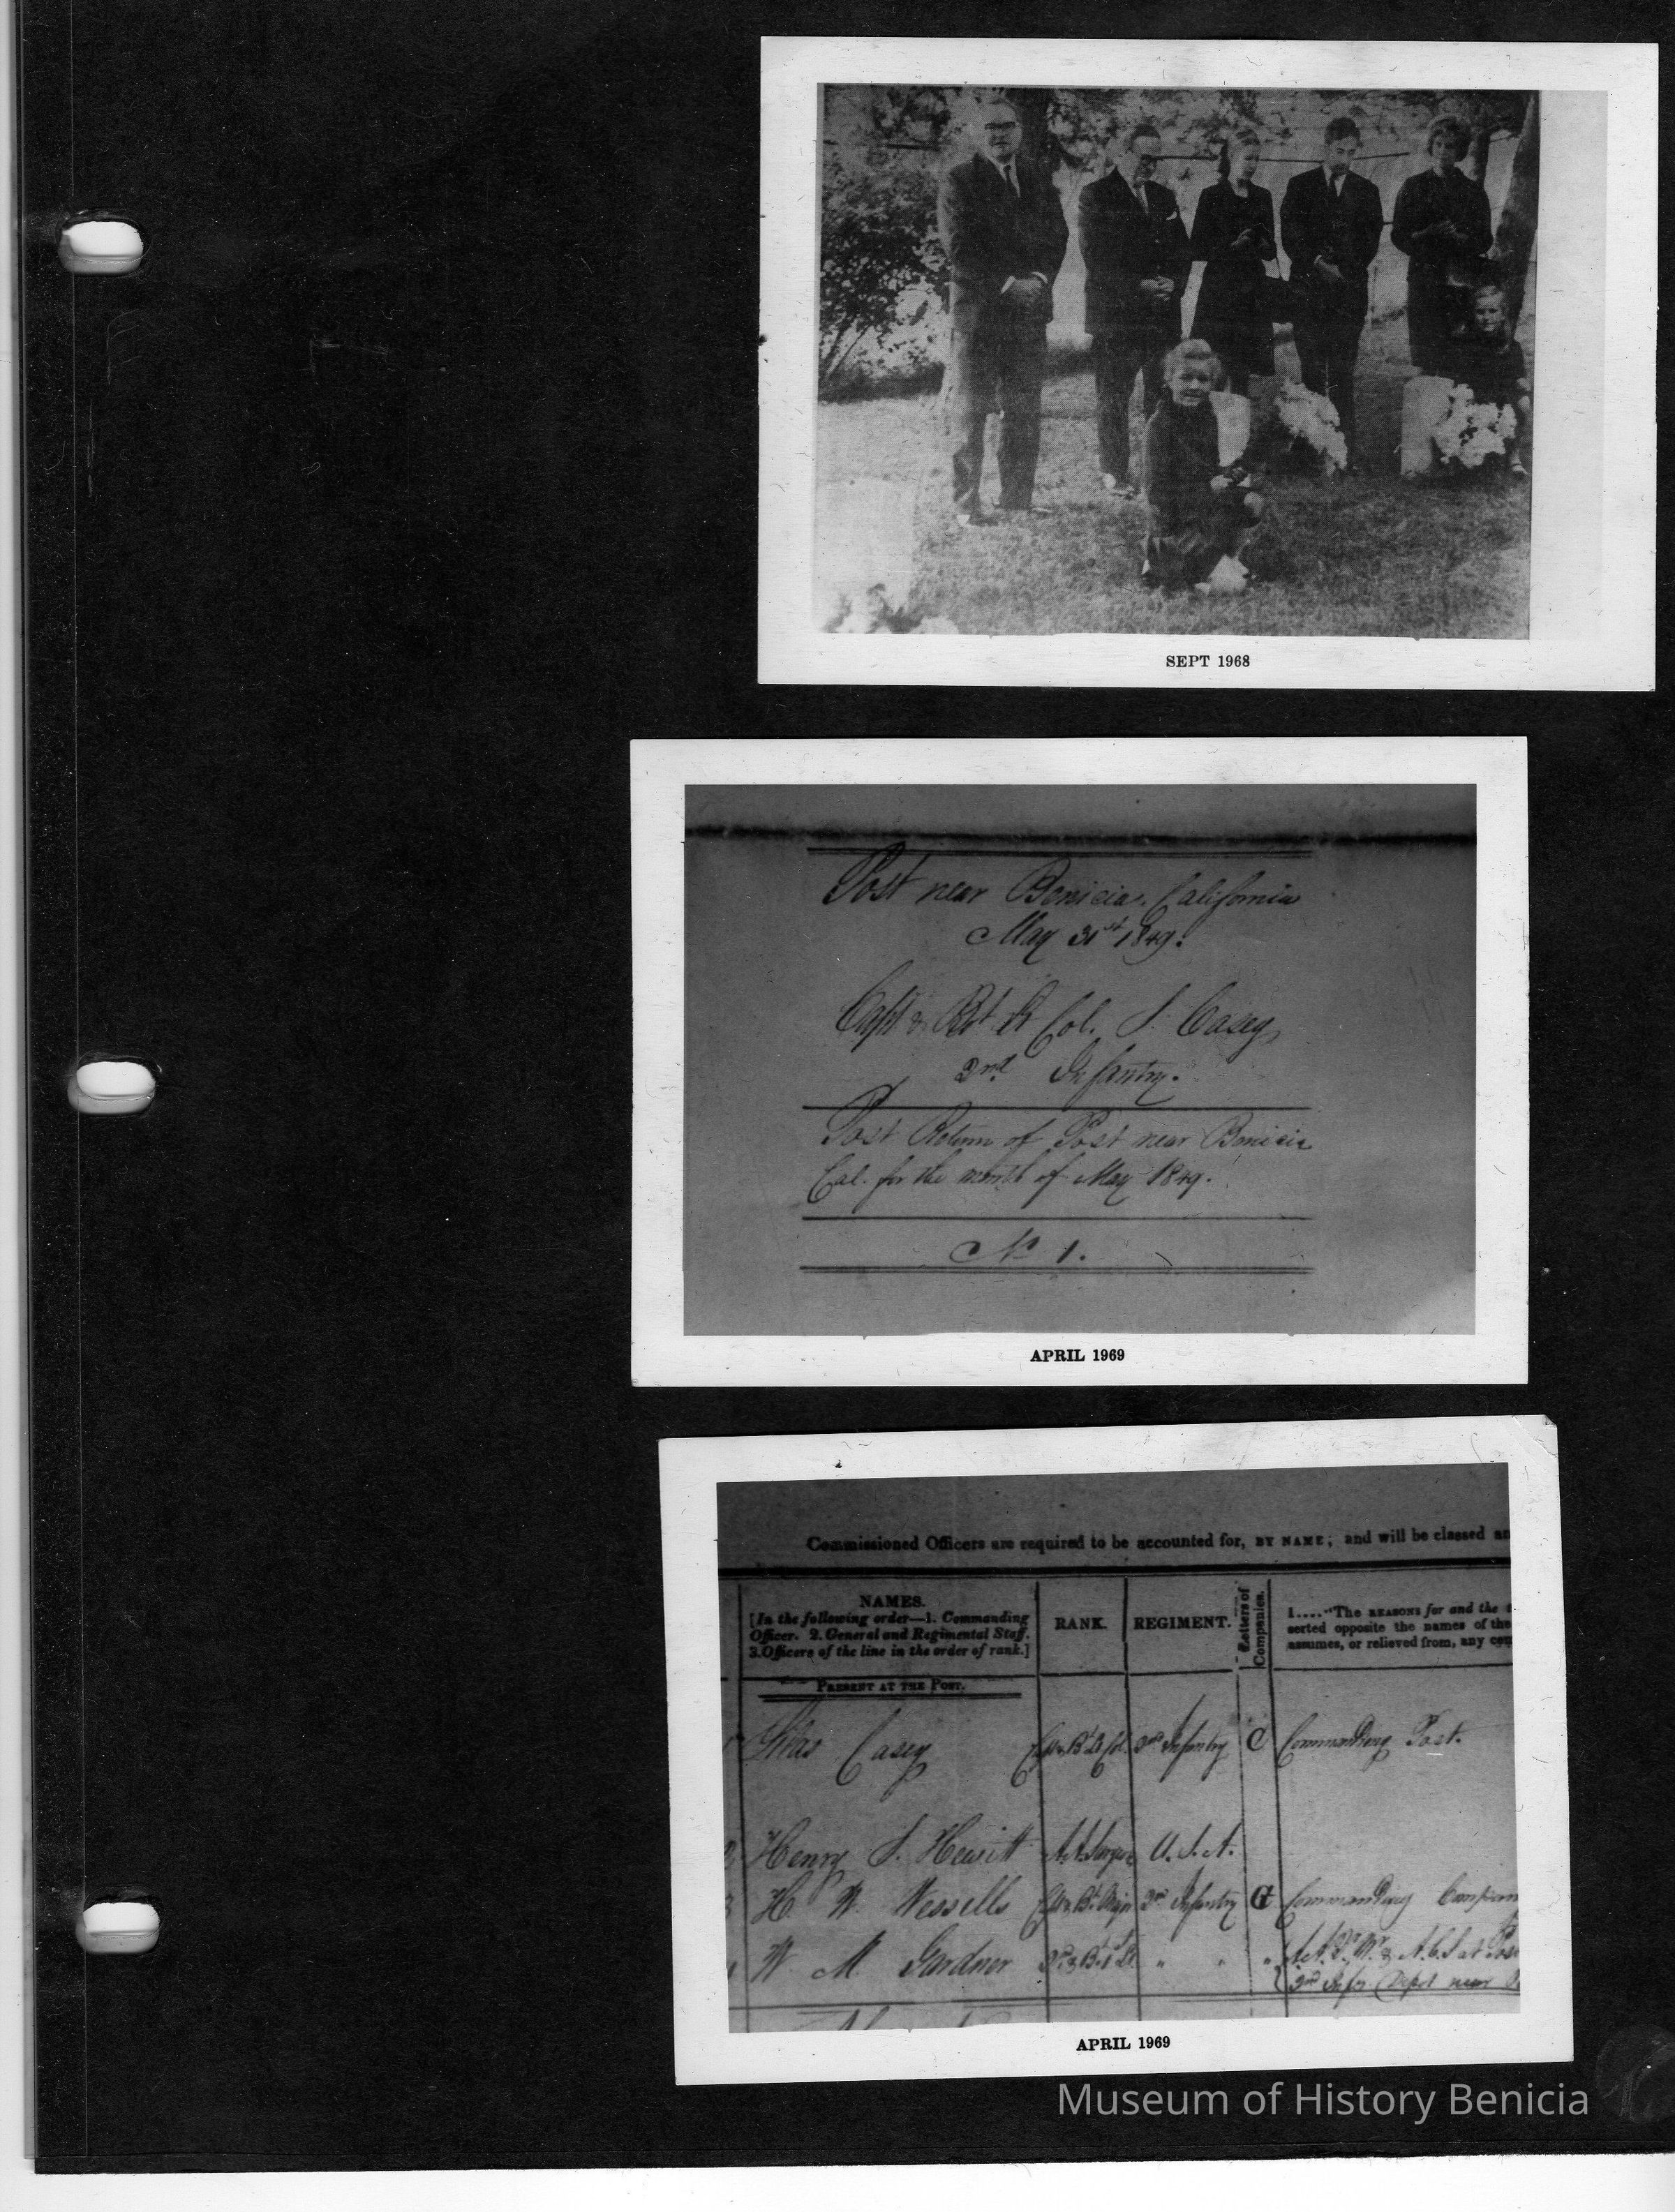 SEPT 1968
Post near Benicia. California
May 31st 1849.
Capt & Bt Lt Col. S. Casey,
2nd Infantry.
Post Return of Post near Benicia
Cal. for the month of May 1849.
No 1.
APRIL 1969
Commissioned Officers are required to be accounted for, BY NAME; and will be classed an
NAMES.
[In the following order—1. Commanding
Officer. 2. General and Regimental Staff.
3. Officers of the line in the order of rank.]
RANK.
REGIMENT.
Letters of
Companies.
1...."The REASONS for and the
serted opposite the names of the
assumes, or relieved from, any com
PRESENT AT THE POST.
1 Silas Casey Capt & Bt Lt Col. 2nd Infantry C Commanding Post.
Henry S. Hewitt A.A. Surgeon U.S.A.
3 H. W. Wessells Capt & Bt. Major 2nd Infantry G Commanding Company
W. M. Gardner 2nd & Bt. 1st Lt. " " " A.A.Q.M. & A.C.S at Post
2nd Infy Depot near
APRIL 1969
Museum of History Benicia